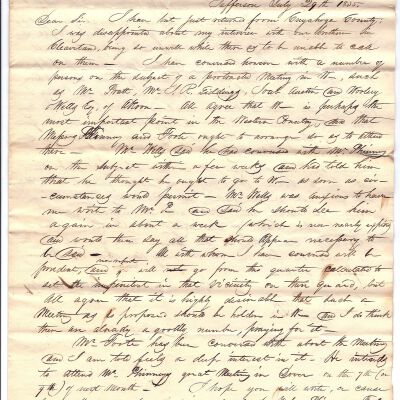 Jefferson July 29th 1835.
Dear Sir. I have but just returned from Cuyahoga County.
I was disappointed about my interview with our brethren in
Cleaveland, being so unwell while there as to be unable to call
on them — I have conversed however with a number of
persons on the subject of a protracted Meeting in W—, such
as Mr. Pratt, Mr. J. R. Giddings, Joab Austin and Worley
Wells Esq. of Akron — All agree that W— is perhaps the
most important point in the Western Country, and that
Messrs Phinney and Foote ought to arrange so as to attend
there — Mr. Wells said he has conversed with Mr. Phinney
on the subject within a few weeks, and has told him
that he thought he ought to go to W— as soon as cir-
cumstances would permit — Mr. Wells was anxious to have
me write to Mr. and said he should see him
again in about a week (which is now nearly expired)
and would then say all that should appear necessary to
be said — All with whom I have conversed will be
prudent, and no report will go from this quarter calculated to
set the impenitent in that vicinity on their guard, but
All agree that it is highly desirable that such a
Meeting as is proposed should be holden in W— and I do think
there are already a goodly number, praying for it —
Mr. Foote has been conversed with about the meeting
and I am told feels a deep interest in it — He intends
to attend Mr. Phinneys great Meeting in on the 7th (or
9th) of next Month — I hope you will write, or cause